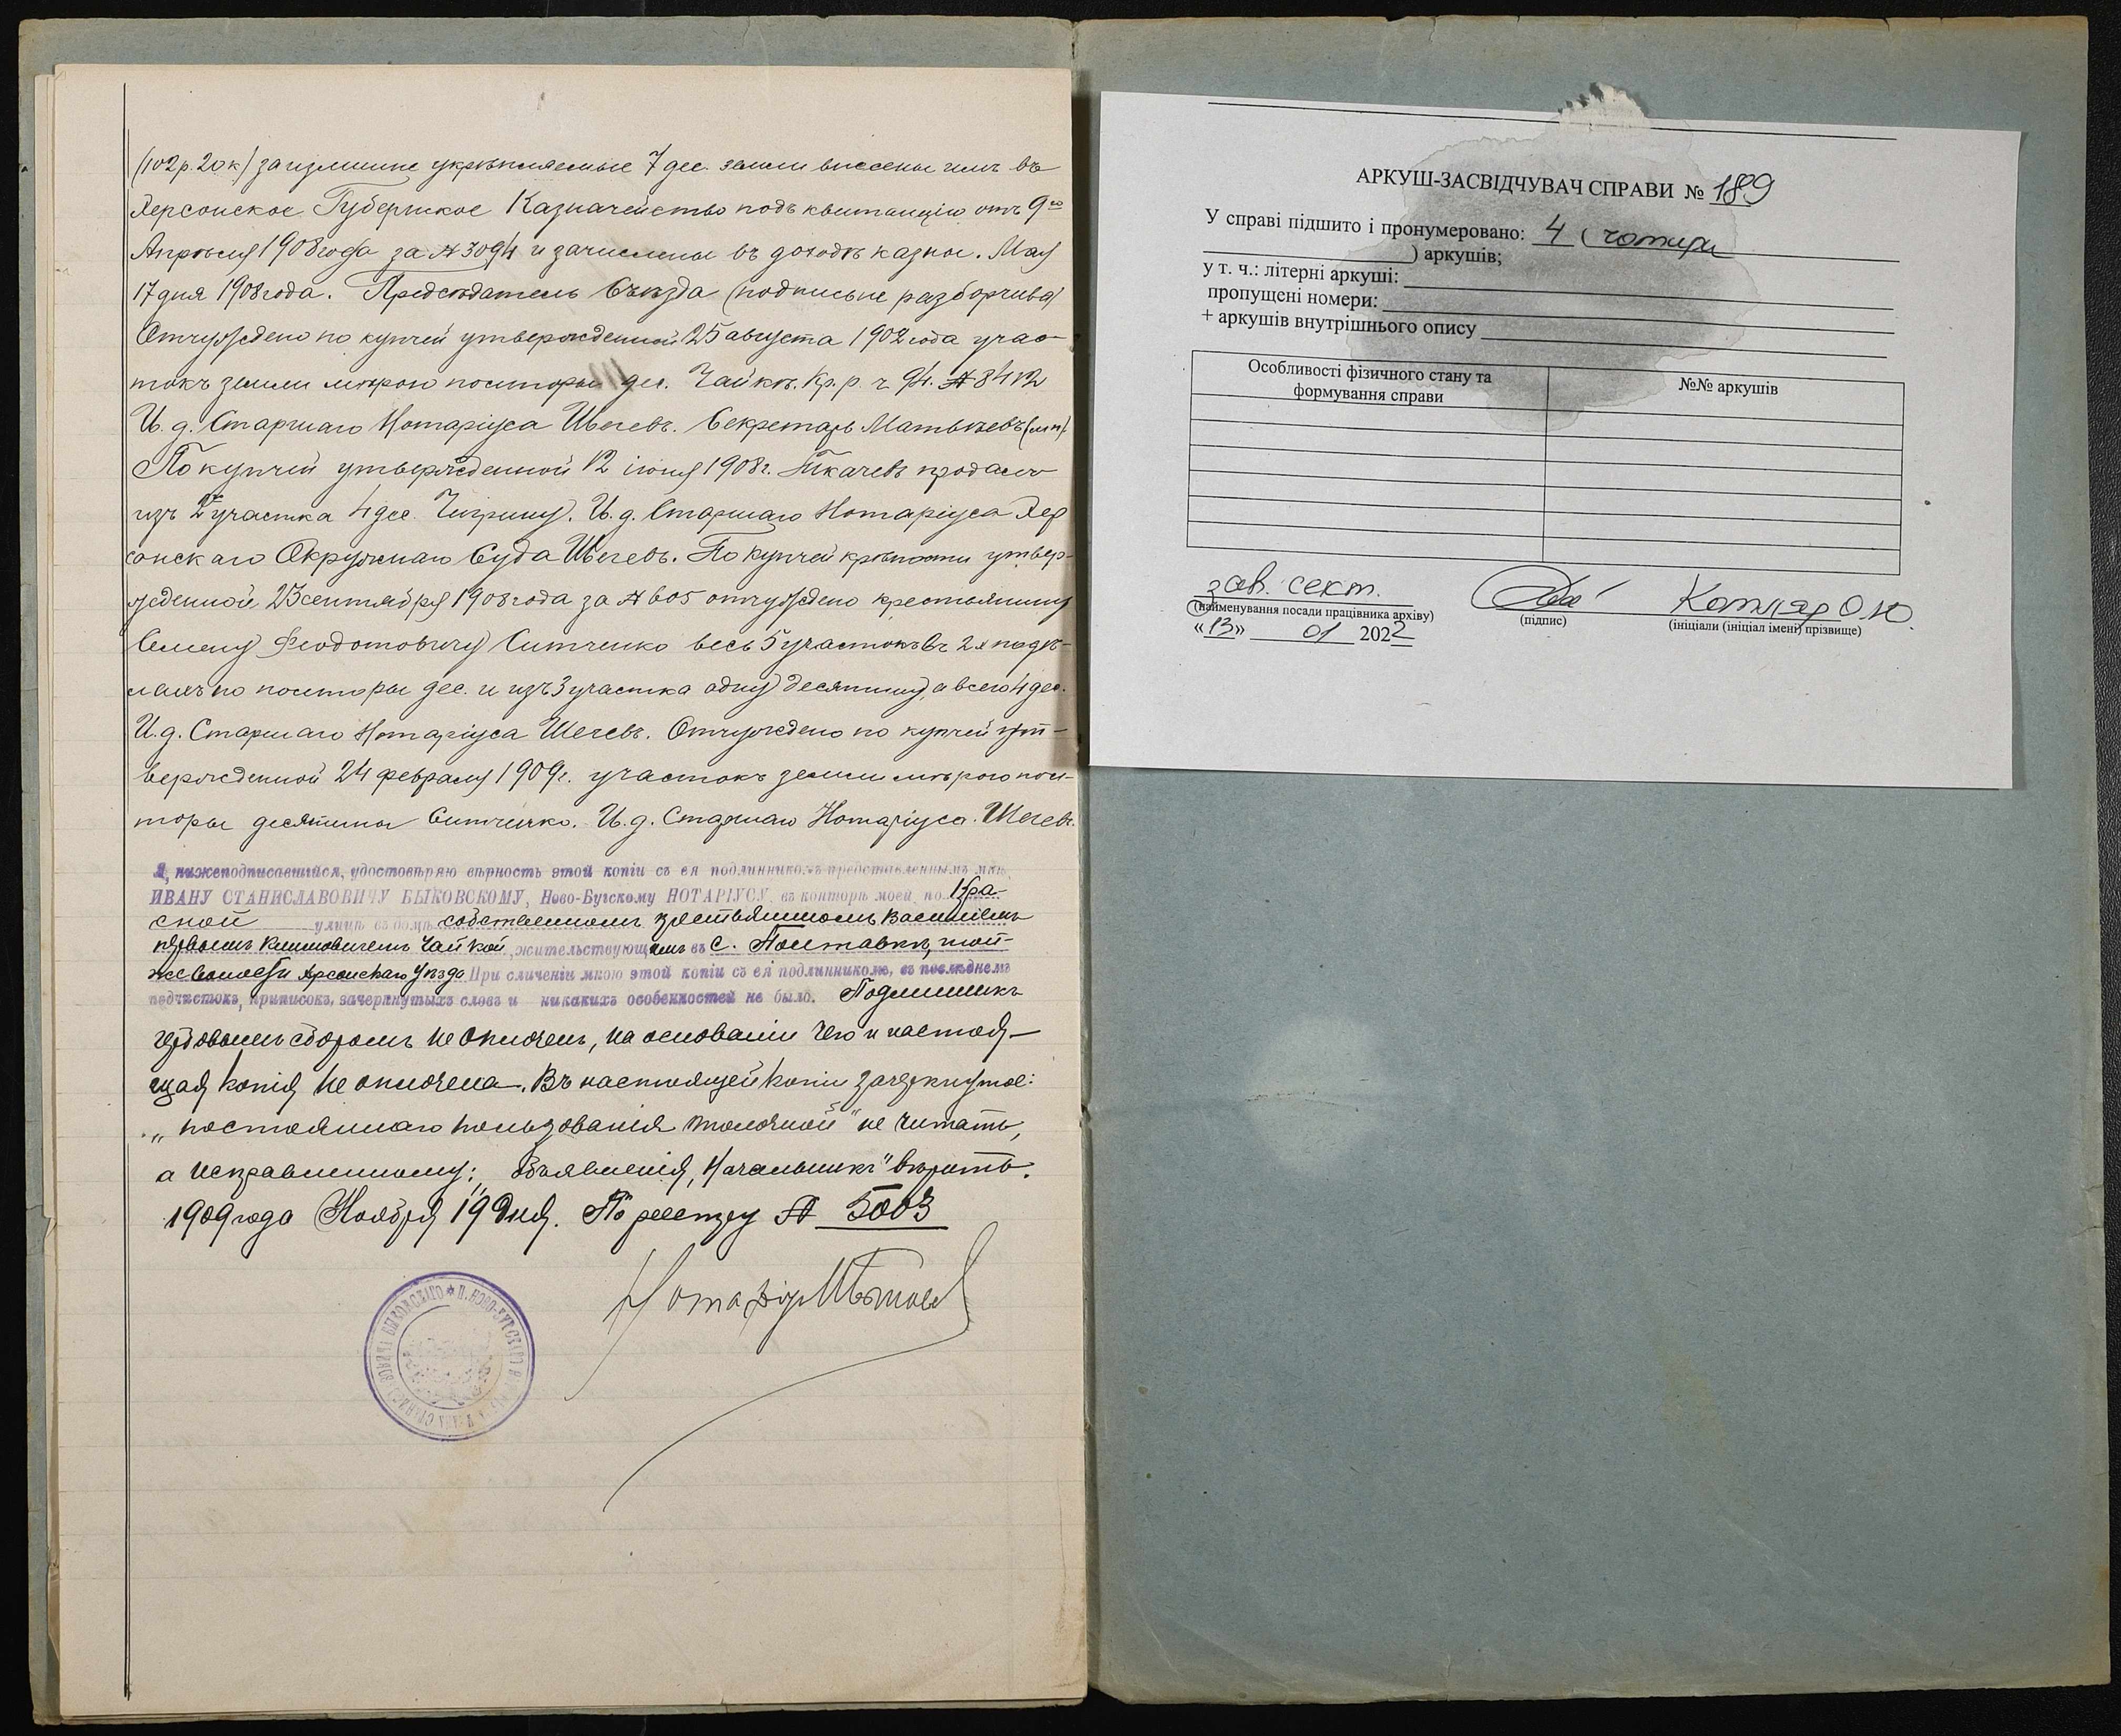 (102 р. 20 к.) за излишне укрѣпляемые 7 дес. земли внесены имъ въ
Херсонское Губернское Казначейство подъ квитанцію отъ 9го
Апрѣля 1908 года за № 3094 и зачислены въ доходъ казны. Мая
17 дня 1908 года. Предсѣдатель Съѣзда (подпись не разборчива)
Отчуждено по купчей утвержденной 25 августа 1902 года учас-
токъ земли мѣрою полторы дес. Чайкѣ. Кр. р. ч 94. № 84
И. д. Старшаго Нотаріуса Щегевъ. Секретарь Матвѣевъ (м п).
По купчей утвержденной 12 іюня 1908 г. Ткачевъ продалъ
изъ 2 участка 4 дес. Чигрину. И. д. Старшаго Нотаріуса Хер
сонскаго Окружнаго Суда Щегевъ. По купчей крѣпости утвер-
жденной 23 сентября 1908 года за № 605 отчуждено крестьянину
Семену Феодотовичу Ситченко весь 5 участокъ въ 2х надѣ-
лахъ по полторы дес. и изъ 3 участка одну десятину, а всего 4 дес.
И. д. Старшаго Нотаріуса Щегевъ. Отчуждено по купчей ут-
вержденной 24 февраля 1909 г. участокъ земли мѣрою пол-
торы десятины Ситченко. И. д. Старшаго Нотаріуса Щегевъ.
Я, нижеподписавшійся, удостовѣряю вѣрность этой копіи съ ея подлинникомъ представленнымъ мнѣ,
ИВАНУ СТАНИСЛАВОВИЧУ БЫКОВСКОМУ, Ново-Бугскому НОТАРІУСУ, въ конторѣ моей по Кра-
сной улицѣ въ домѣ собственномъ крестьяниномъ Василіемъ
Климовичемъ Чайкой, жительствующимъ въ с. Полтавкѣ, той-
же волости Херсонскаго уѣзда При сличеніи мною этой копіи съ ея подлинникомъ, въ послѣднемъ
подчистокъ, приписокъ, зачеркнутыхъ словъ и никакихъ особенностей не было. Подлинникъ
гербовымъ сборомъ не оплоченъ, на основаніи чего и настоя-
щая копія не оплочена. Въ настоящей копіи зачеркнутое:
„постояннаго пользованія толочной“ не читать,
а исправленному: „объявленія, Начальникъ“ вѣрить.
1909 года Ноября 19 дня. По реестру № 5003
Нотаріусъ
АРКУШ-ЗАСВІДЧУВАЧ СПРАВИ № 189
У справі підшито і пронумеровано: 4 (чотири
) аркушів;
у т. ч.: літерні аркуші:
пропущені номери:
+ аркушів внутрішнього опису
Особливості фізичного стану та
формування справи
№№ аркушів
зав. сект.
Котляр О.Ю.
(найменування посади працівника архіву)
(підпис)
(ініціали (ініціал імені) прізвище)
«13» 01 2022